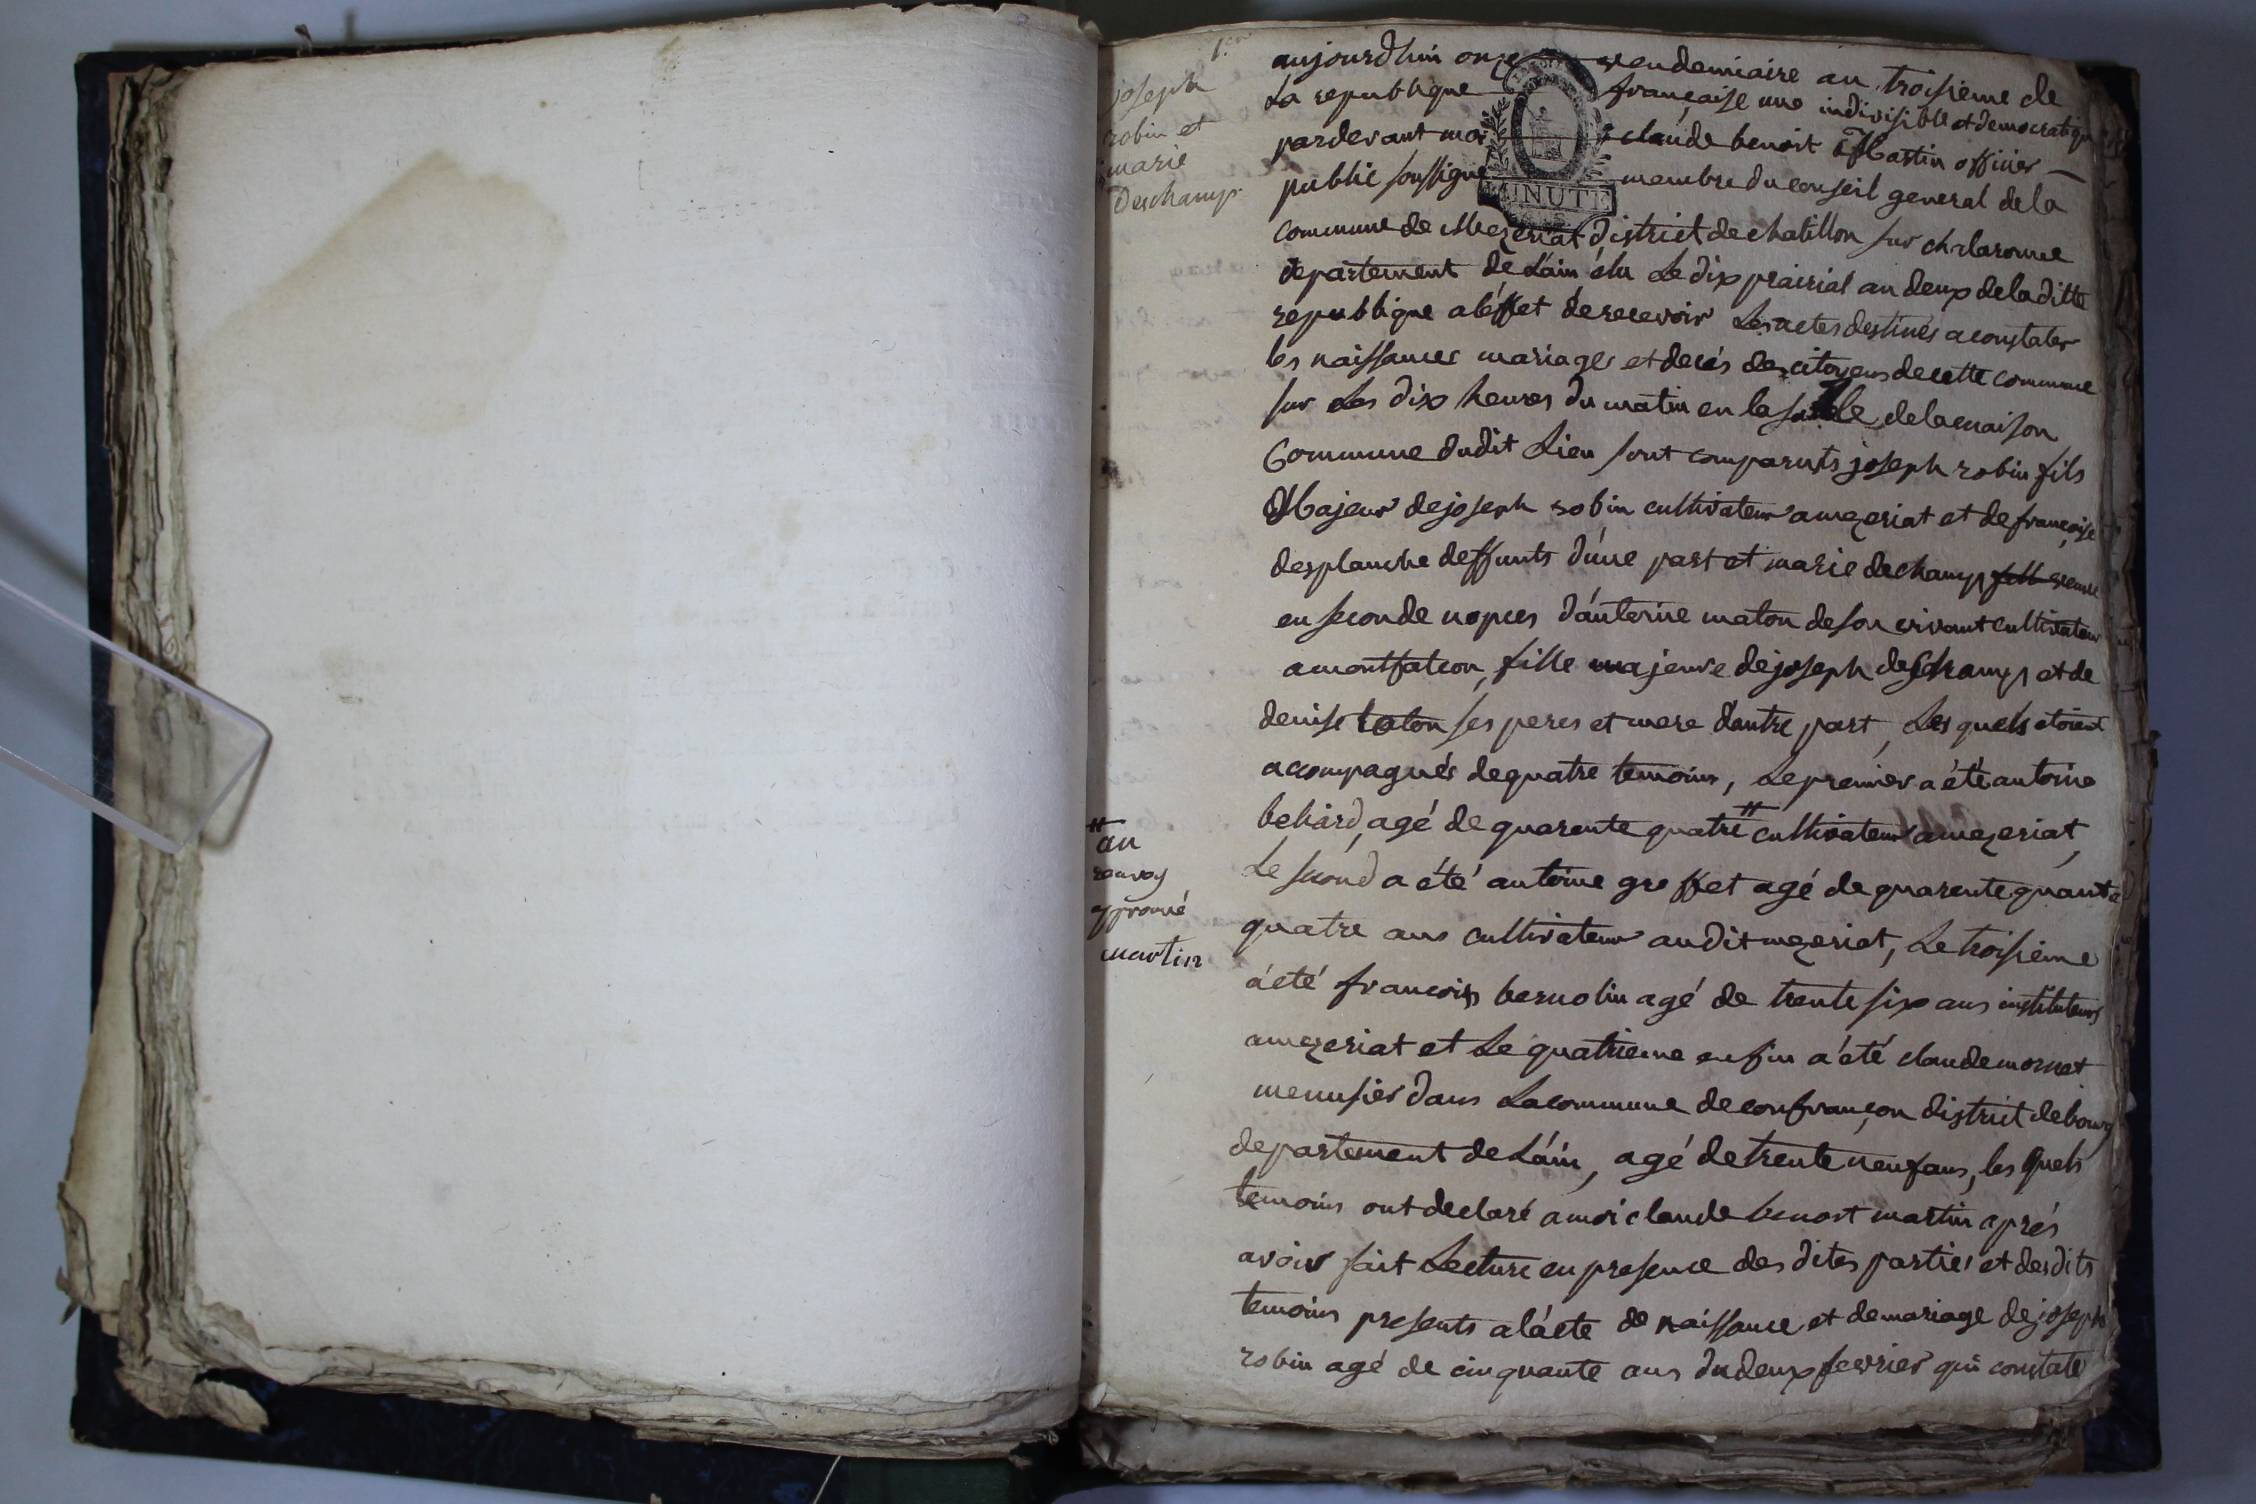 1.er
joseph
robin et
marie
Deschamp
aujourdhui onze vendemiaire an troisieme de
La republique française une indivisible et democratique
pardevant moi claude benoit Martin officier
public soussigné membre du conseil general de la
MINUTE
commune de Mezeriat district de chatillon sur chalaronne
departement de L'ain élu Le dix prairial an deux de la ditte
republique a l'éffet de recevoir Les actes destinés a constater
les naissances mariages et decés des citoyens de cette commune
sur Les dix heures du matin en la salle de la maison
Commune dudit Lieu sont comparuts joseph robin fils
Majeur de joseph robin cultivateur a mezeriat et de françoise
desplanche deffunts d'une part et marie dechamp veuve
en seconde nopces d'antoine maton de son vivant cultivateur
a montfalcon, fille majeure de joseph deschamp et de
denise laton ses peres et mere d'autre part, Les quels etoient
accompagnés de quatre temoins, Le premier a été antoine
beliard, agé de quarente quatre # cultivateur a mezeriat,
#
an
renvoy
approuvé
martin
Le second a été antoine greffet agé de quarente quante
quatre ans cultivateur au dit mezeriat, Le troisieme
a été francois bernolin agé de trente six ans instituteur
a mezeriat et Le quatrieme enfin a été claude mornet
menusier dans La commune de confrançon district de bourg
departement de L'ain, agé de trente neuf ans, les quels
temoins ont declaré a moi claude benoit martin aprés
avoir fait Lecture en presence des dites parties et desdits
temoins presents a l'acte de naissance et de mariage de joseph
robin agé de cinquante ans du deux fevrier qui constate